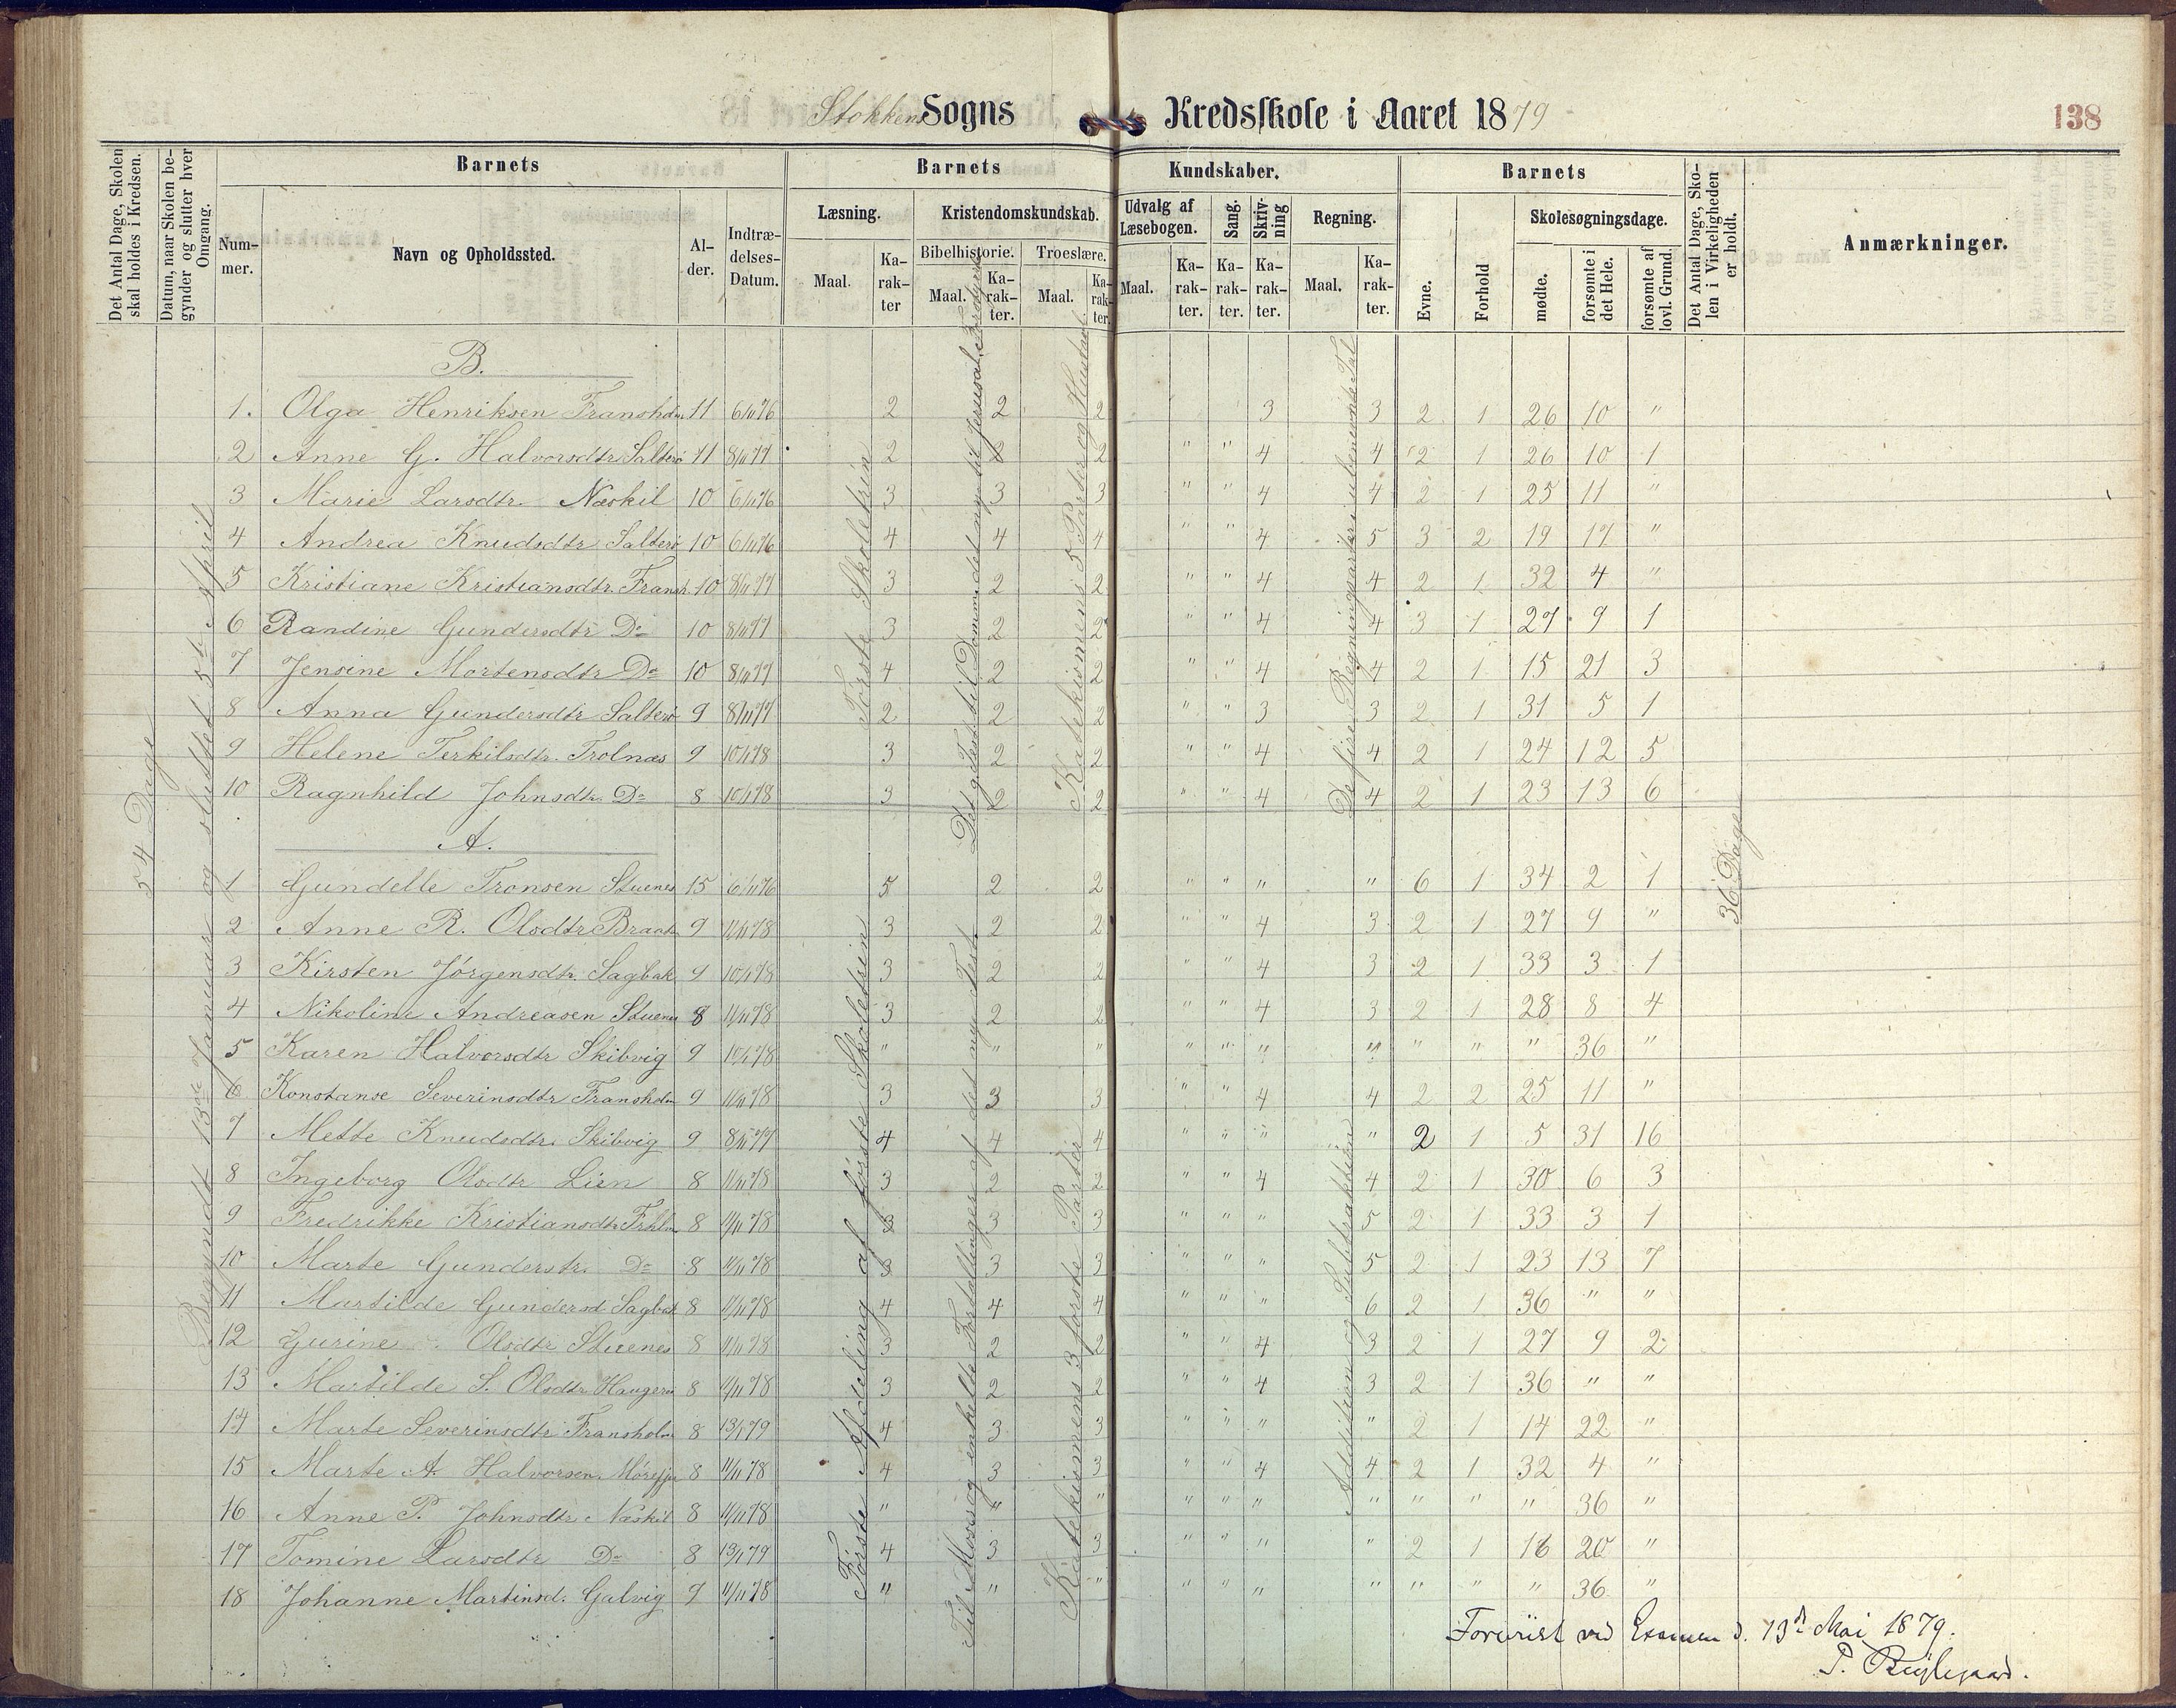 Stokken Sogns Kredsskole i Aaret 1879 138
Det Antal Dage, Skolen skal holdes i Kredsen.
Datum, naar Skolen begynder og slutter hver Omgang.
Barnets
Num-
mer.
Navn og Opholdssted.
Al-
der.
Indtræ-
delses-
Datum.
Barnets Kundskaber.
Læsning. Kristendomskundskab. Udvalg af Læsebogen. Sang. Skriv-ning Regning.
Bibelhistorie. Troeslære.
Maal. Ka-rak-ter Maal. Ka-rak-ter. Maal. Ka-rak-ter. Maal. Ka-rak-ter. Ka-rak-ter. Ka-rak-ter. Maal. Ka-rak-ter.
Barnets
Evne. Forhold Skolesøgningsdage.
mødte. forsømte i det Hele. forsømte af lovl. Grund.
Det Antal Dage, Sko-len i Virkeligheden er holdt.
Anmærkninger.
54 Dage
Begyndt 13de Januar og sluttet 5te April
B.
1. Olga Henriksen Fransholm 11 6/11 76 2 2 2 3 3 2 1 26 10 "
2 Anne G. Halvorsdtr Salterø 11 8/11 77 2 2 2 " " 4 4 2 1 26 10 1
3 Marie Larsdtr. Næskil 10 6/11 76 3 3 3 " " 4 4 2 1 25 11 "
4 Andrea Knudsdtr Salterø 10 6/11 76 4 4 4 " " 4 5 3 2 19 17 "
5 Kristiane Kristiansdtr. Fransh. 10 8/11 77 3 2 2 " " 4 4 2 1 32 4 "
6 Randine Gundersdtr Do 10 8/11 77 3 2 2 " " 4 4 3 1 27 9 1
7 Jensine Mortensdtr Do 10 8/11 77 4 2 2 " " 4 4 2 1 15 21 3
8 Anna Gundersdtr Salterø 9 8/11 77 2 2 2 " " 3 3 2 1 31 5 1
9 Helene Terkilsdtr. Trolnæs 9 10/1 78 3 2 2 " " 4 4 2 1 24 12 5
10 Ragnhild Johnsdtr. Do 8 10/1 78 3 2 2 " " 4 4 2 1 23 13 6
Første Skoletrin
Det gl. Test. til Dommer, det nye til Jerusal.
Katekismens 5 Parter og Hustavl.
De fire Regningsarter i ubenævnte Tal
A.
1 Gundelle Tronsen Stuenes 15 6/11 76 5 2 2 " " " " 6 1 34 2 1
2 Anne R. Olsdtr 9 11/11 78 3 2 2 " " 4 3 2 1 27 9 "
3 Kirsten Jørgensdtr. Sagbak 9 10/1 78 3 2 2 " " 4 3 2 1 33 3 1
4 Nikoline Andreasen Stuenes 8 11/11 78 3 2 2 " " 4 3 2 1 28 8 4
5 Karen Halvorsdtr Skibvig 9 10/1 78 " " " " " " " " " " 36 "
6 Konstanse Severinsdtr Fransholm 9 11/11 78 3 3 3 " " 4 4 2 2 25 11 "
7 Mette Knudsdtr. Skibvig 9 8/11 77 4 4 4 " " " " 2 1 5 31 16
8 Ingeborg Olsdtr Lien 8 11/11 78 3 2 2 " " 4 4 2 1 30 6 3
9 Fredrikke Kristiansdtr Frhlm 8 11/11 78 3 3 3 " " " 5 2 1 33 3 1
10 Marte Gunderstr. Do 8 11/11 78 3 3 3 " " " 5 2 1 23 13 7
11 Martilde Gundersd. Sagbak 8 11/11 78 4 4 4 " " " 6 2 1 36 " "
12 Gurine Olsdtr Stuenes 8 11/11 78 3 2 2 " " 4 3 2 1 27 9 2
13 Martilde S. Olsdtr 8 11/11 78 3 2 2 " " 4 3 2 1 36 " "
14 Marte Severinsdtr Fransholm 8 13/1 79 4 3 3 " " " " 2 1 14 22 "
15 Marte A. Halvorsen 8 11/11 78 4 3 3 " " 4 4 2 1 32 4 "
16 Anne P. Johnsdtr. Næskil 8 11/11 78 " " " " " " " " " " 36 "
17 Tomine Larsdtr Do 8 13/1 79 4 3 3 " " " " 2 1 16 20 "
18 Johanne Martinsd. Galvig 9 11/11 78 " " " " " " " " " " 36 "
Første Afdeling af første Skoletrin
Til Moses og enkelte Fortællinger af det nye Test.
Katekismens 3 første Parter
Addition og Subtraktion
36 Dage
Forevist ved Examen d. 13de Mai 1879.
P.